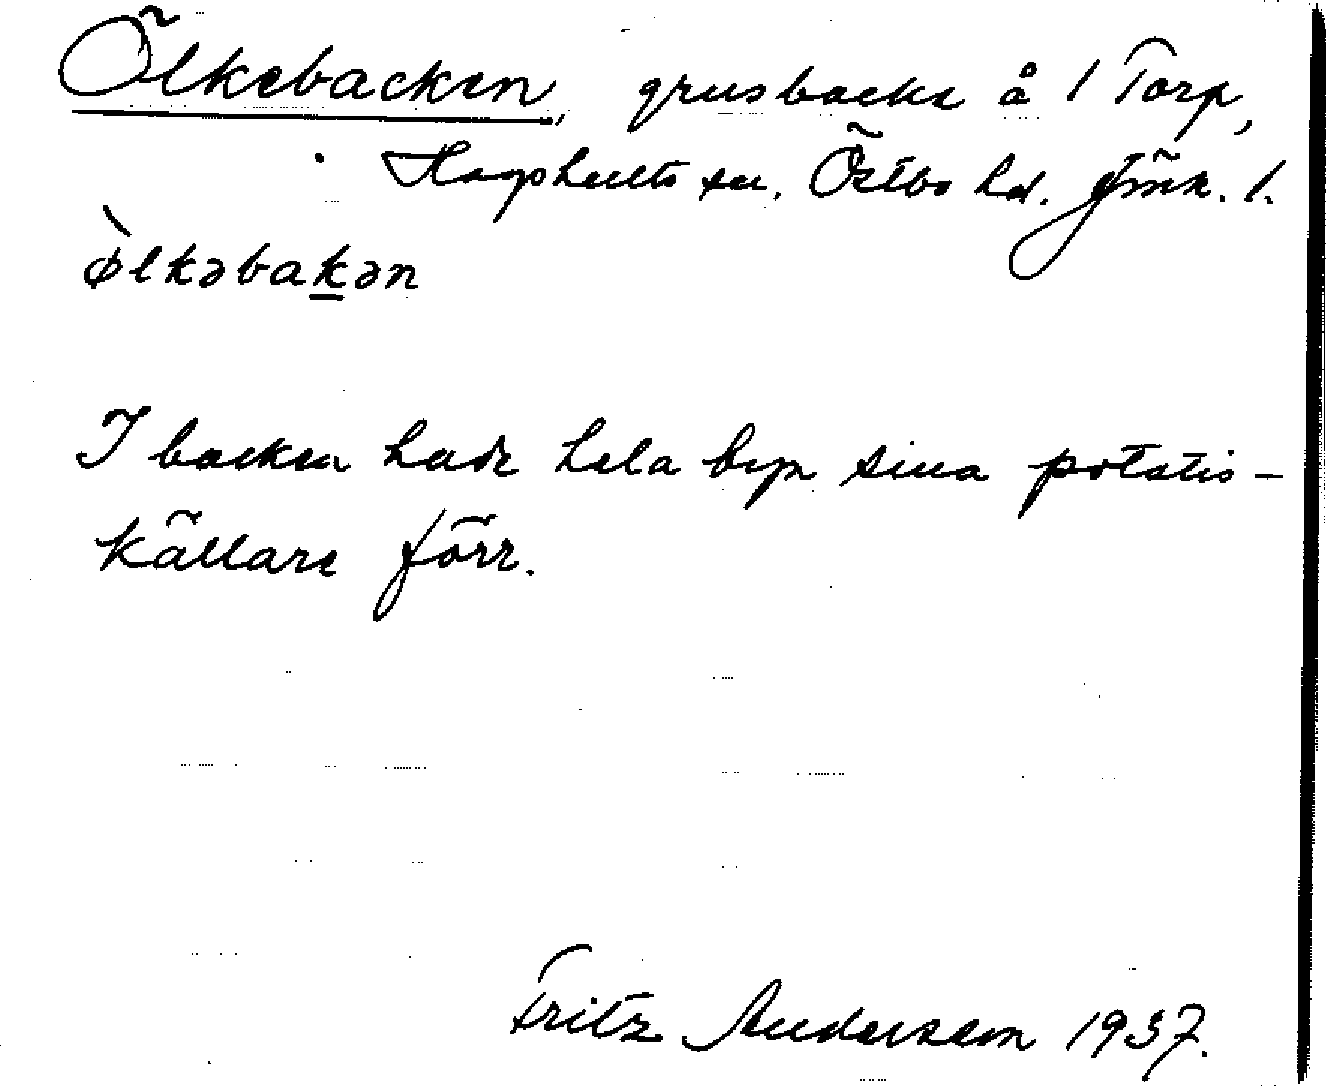 Ölkebacken, grusbacke å 1 Torp,
Hagshults sn. Östbo hd. Jönk. l.
ø̀lkəbakən
I backen hade hela byn sina potatis-
källare förr.
Fritz Andersson 1937.